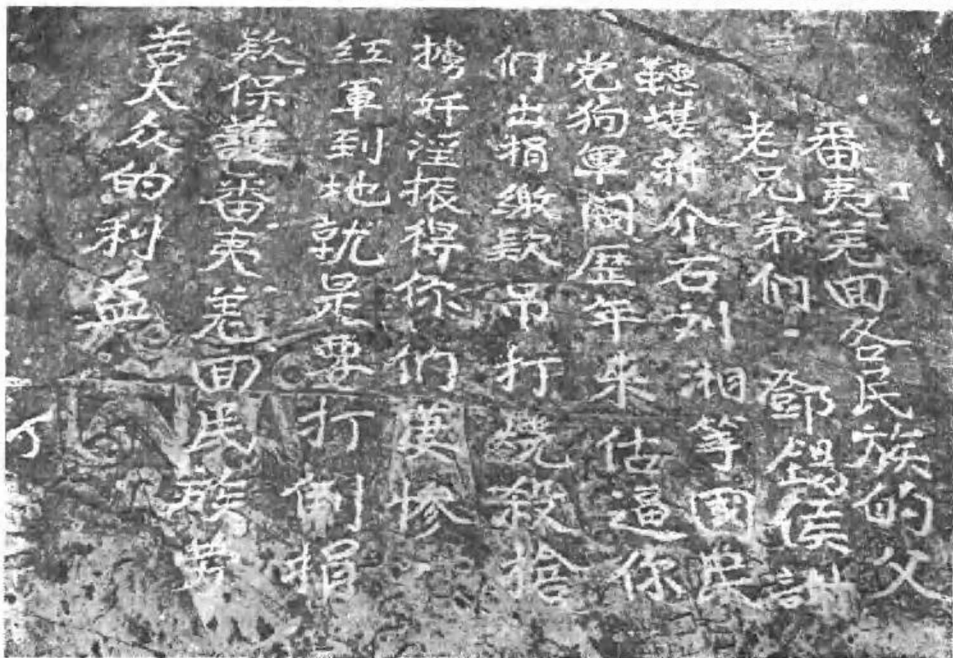 番夷羌回各民族的父
老兄弟们：鄧錫侯
堪蔣介石刘湘等國民
党狗軍閥歷年來估逼你
们出捐缴欵吊打燒殺搶
擄奸淫振得你们凄惨
红軍到地就是要打倒捐
欵保護番夷羌回民族劳
苦大众的利益